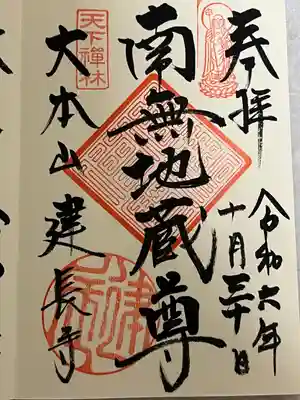 奉拝
令和六年
十月三十日
南無地蔵尊
天下禅林
大本山 建長寺